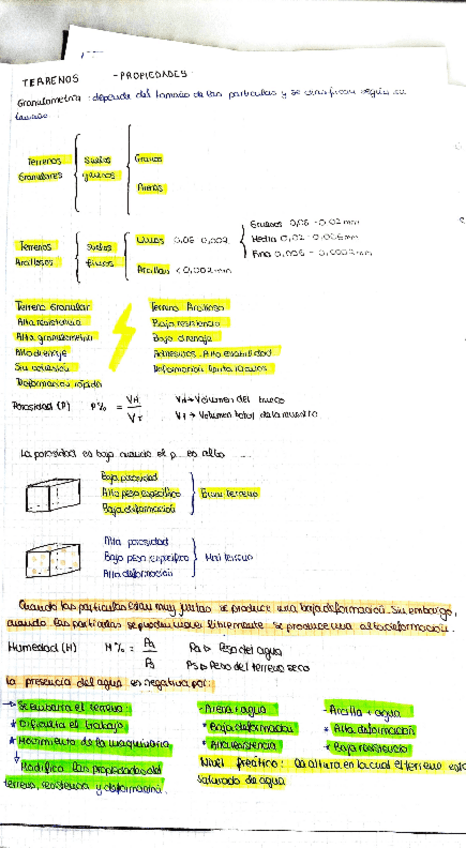 TERRENOS - PROPIEDADES
Granulometria : depende del tamaño de las particulas y se clasifican según su
tamaño
Terrenos Suelos Gravas
Granulares gruesos
Arenas
Terrenos Suelos Limos 0,06 0,002
Arcillosos finos Arcillas < 0,002 mm
Gruesos 0,06 - 0,02 mm
Medio 0,02 - 0,006 mm
Fino 0,006 - 0,0002 mm
Terreno Granular Terreno Arcilloso
Alta resistencia Baja resistencia
Alta granulometria Baja drenaje
Alto drenaje Adhesivos. Alta
Sin cohesión Deformación lenta
Deformación rápida
Porosidad (P) P% = VH / VT
VH → Volumen del hueco
VT → Volumen total de la muestra
La porosidad es baja cuando el p. es alto
Baja porosidad
Alto peso específico Buen terreno
Baja deformación
Alta porosidad
Bajo peso específico Mal terreno
Alta deformación
Cuando las particulas estan muy juntas se produce una baja deformación. Sin embargo,
cuando las particulas se mueven libremente se produce una alta deformación.
Humedad (H) H% = Pa / Ps
Pa ▷ Peso del agua
Ps ▷ Peso del terreno seco
La presencia del agua es negativa por:
→ Se embarra el terreno: - Arena + agua - Arcilla + agua
* Dificulta el trabajo * Baja deformacion * Alta deformacion
* Movimiento de la maquinaria * Alta resistencia * Baja resistencia
↓ Modifica las propiedades del
terreno, resistencia y deformación.
Nivel freático: la altura en la cual el terreno está
saturado de agua